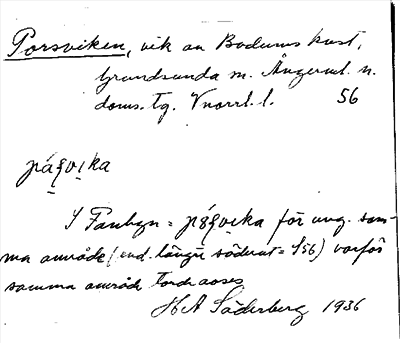 Porsviken, vik av Bodums kust,
Grundsunda sn. Ångerml. n.
doms. tg. Vnorrl. l. 56
pá̱ʂvı̣ka
I Fanbyn = pɞ́ʂvıka för ung. sam-
ma område (end. längre söderut = 456) varför
samma område torde avses
H A Söderberg 1936